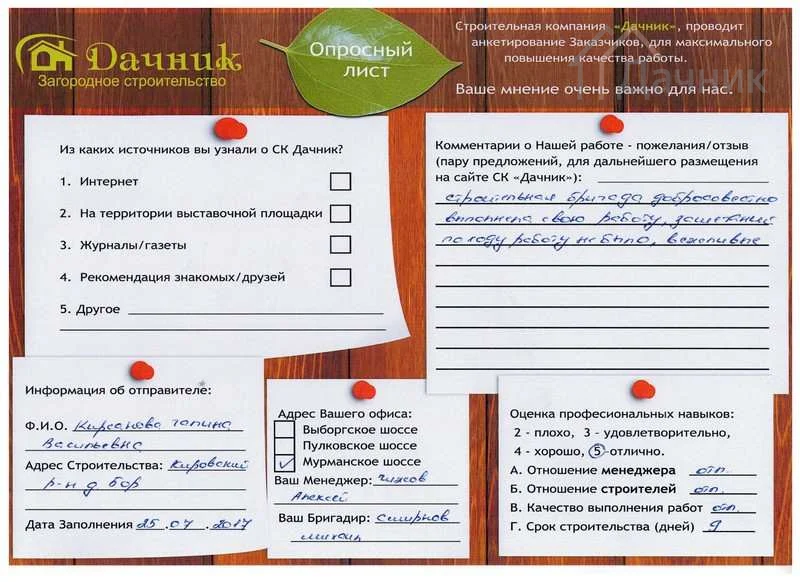 Дачник
Загородное строительство
Опросный
лист
Строительная компания «Дачник», проводит
анкетирование Заказчиков, для максимального
повышения качества работы.
Ваше мнение очень важно для нас.
Дачник
Из каких источников вы узнали о СК Дачник?
1. Интернет
2. На территории выставочной площадки
3. Журналы/газеты
4. Рекомендация знакомых/друзей
5. Другое
Комментарии о Нашей работе - пожелания/отзыв
(пару предложений, для дальнейшего размещения
на сайте СК «Дачник»):
строительная бригада добросовестно
выполнила свою работу, замечаний
по ходу работы не было, вежливые
Информация об отправителе:
Ф.И.О. Кирсанова Галина
Васильевна
Адрес Строительства: Кировский
р-н д. Бор
Дата Заполнения 25 .07 .2017
Адрес Вашего офиса:
Выборгское шоссе
Пулковское шоссе
✓ Мурманское шоссе
Ваш Менеджер: Чижов
Алексей
Ваш Бригадир: Смирнов
Михаил
Оценка професиональных навыков:
2 - плохо, 3 - удовлетворительно,
4 - хорошо, 5 -отлично.
А. Отношение менеджера отл.
Б. Отношение строителей отл.
В. Качество выполнения работ отл.
Г. Срок строительства (дней) 9